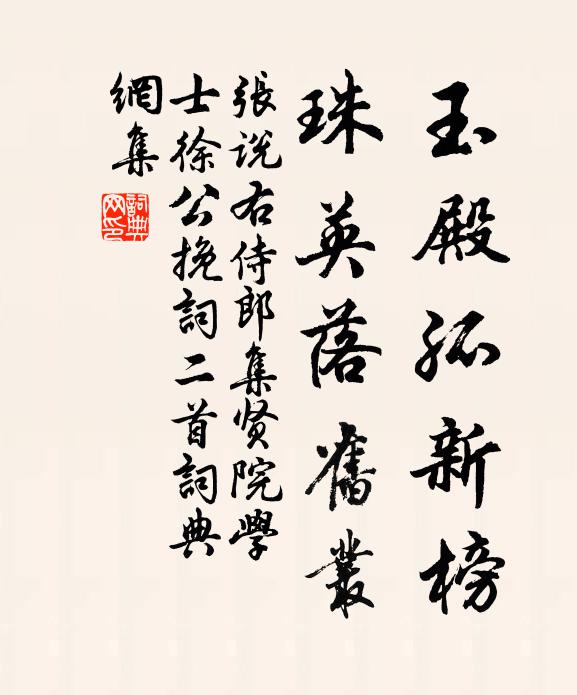 玉殿孤新榜
珠英落舊叢
張説右侍郎集贤院學
士徐公挽詞二首詞典
網集
詞典
网印